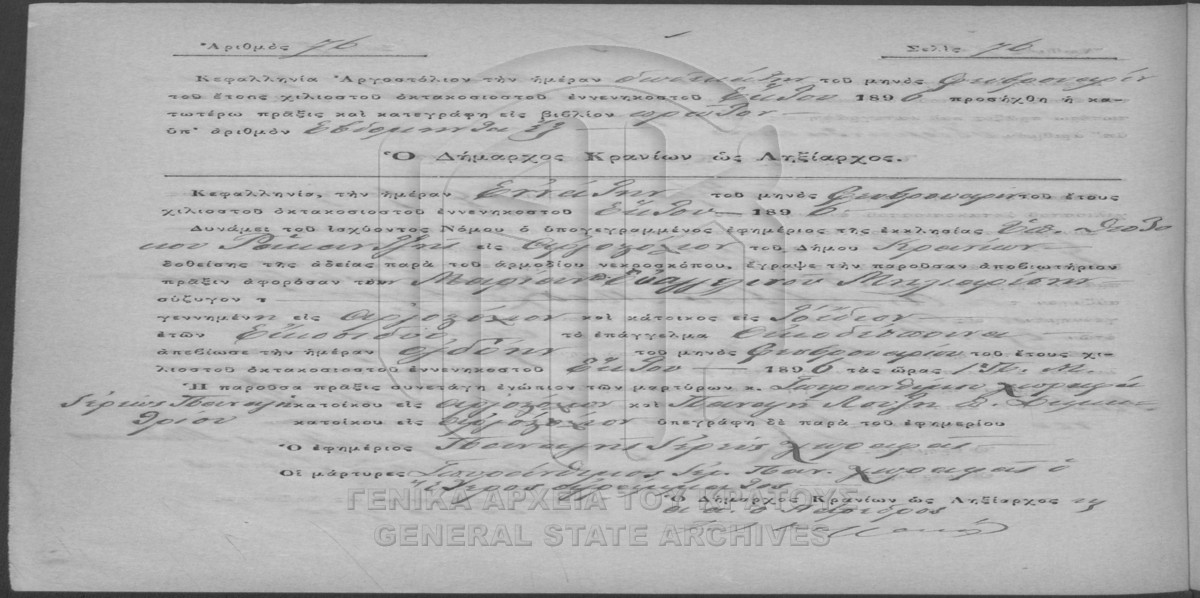 Ἀριθμὸς 76 Σελὶς 76
Κεφαλληνία Ἀργοστόλιον τὴν ἡμέραν δωδεκάτην τοῦ μηνὸς Φεβρουαρίου
τοῦ ἔτους χιλιοστοῦ ὀκτακοσιοστοῦ ἐννενηκοστοῦ ἕκτου 1896 προσήχθη ἡ κα-
τωτέρω πρᾶξις καὶ κατεγράφη εἰς βιβλίον πρῶτον
ὑπ' ἀριθμὸν Εβδομηντα ἕξ
Ὁ Δήμαρχος Κρανίων ὡς Ληξίαρχος.
Κεφαλληνία, τὴν ἡμέραν Εννάτην τοῦ μηνὸς Φεβρουαρίου τοῦ ἔτους
χιλιοστοῦ ὀκτακοσιοστοῦ ἐννενηκοστοῦ ἕκτου 1896
Δυνάμει τοῦ ἰσχύοντος Νόμου ὁ ὑπογεγραμμένος ἐφημέριος τῆς ἐκκλησίας Ὑπ. Θεοτό
κου εἰς τοῦ Δήμου Κρανίων
δοθείσης τῆς ἀδείας παρὰ τοῦ ἁρμοδίου νεκροσκόπου, ἔγραψε τὴν παροῦσαν ἀποβιωτήριον
πρᾶξιν ἀφορῶσαν τὴν Μαρίαν Εὐαγγελινοῦ Μηλιαρέση
σύζυγον τ
γεννημένη εἰς καὶ κάτοικος εἰς
ἐτῶν Εἰκοσιδύο τὸ ἐπάγγελμα Οἰκοδέσποινα
ἀπεβίωσε τὴν ἡμέραν ὀγδόην τοῦ μηνὸς Φεβρουαρίου τοῦ ἔτους χι-
λιοστοῦ ὀκτακοσιοστοῦ ἐννενηκοστοῦ ἕκτου 1896 τὰς ὥρας Π. Μ.
Ἡ παροῦσα πρᾶξις συνετάγη ἐνώπιον τῶν μαρτύρων κ. Σπυρανθίμου Χωραφᾶ
Ἱερέως Παναγῆ κατοίκου εἰς καὶ Παναγῆ Δημη-
τρίου κατοίκου εἰς ὑπεγράφη δὲ παρὰ τοῦ ἐφημερίου
Ὁ ἐφημέριος Παναγης Ἱερεὺς Χωραφᾶς
Οἱ μάρτυρες Σπυράνθιμος Ἱερ. Παν. Χωραφᾶς ὁ
ἕτερος ἀγράμματος
Ὁ Δήμαρχος Κρανίων ὡς Ληξίαρχος
ὁ Πάρεδρος
ΓΕΝΙΚΑ ΑΡΧΕΙΑ ΤΟΥ ΚΡΑΤΟΥΣ
GENERAL STATE ARCHIVES